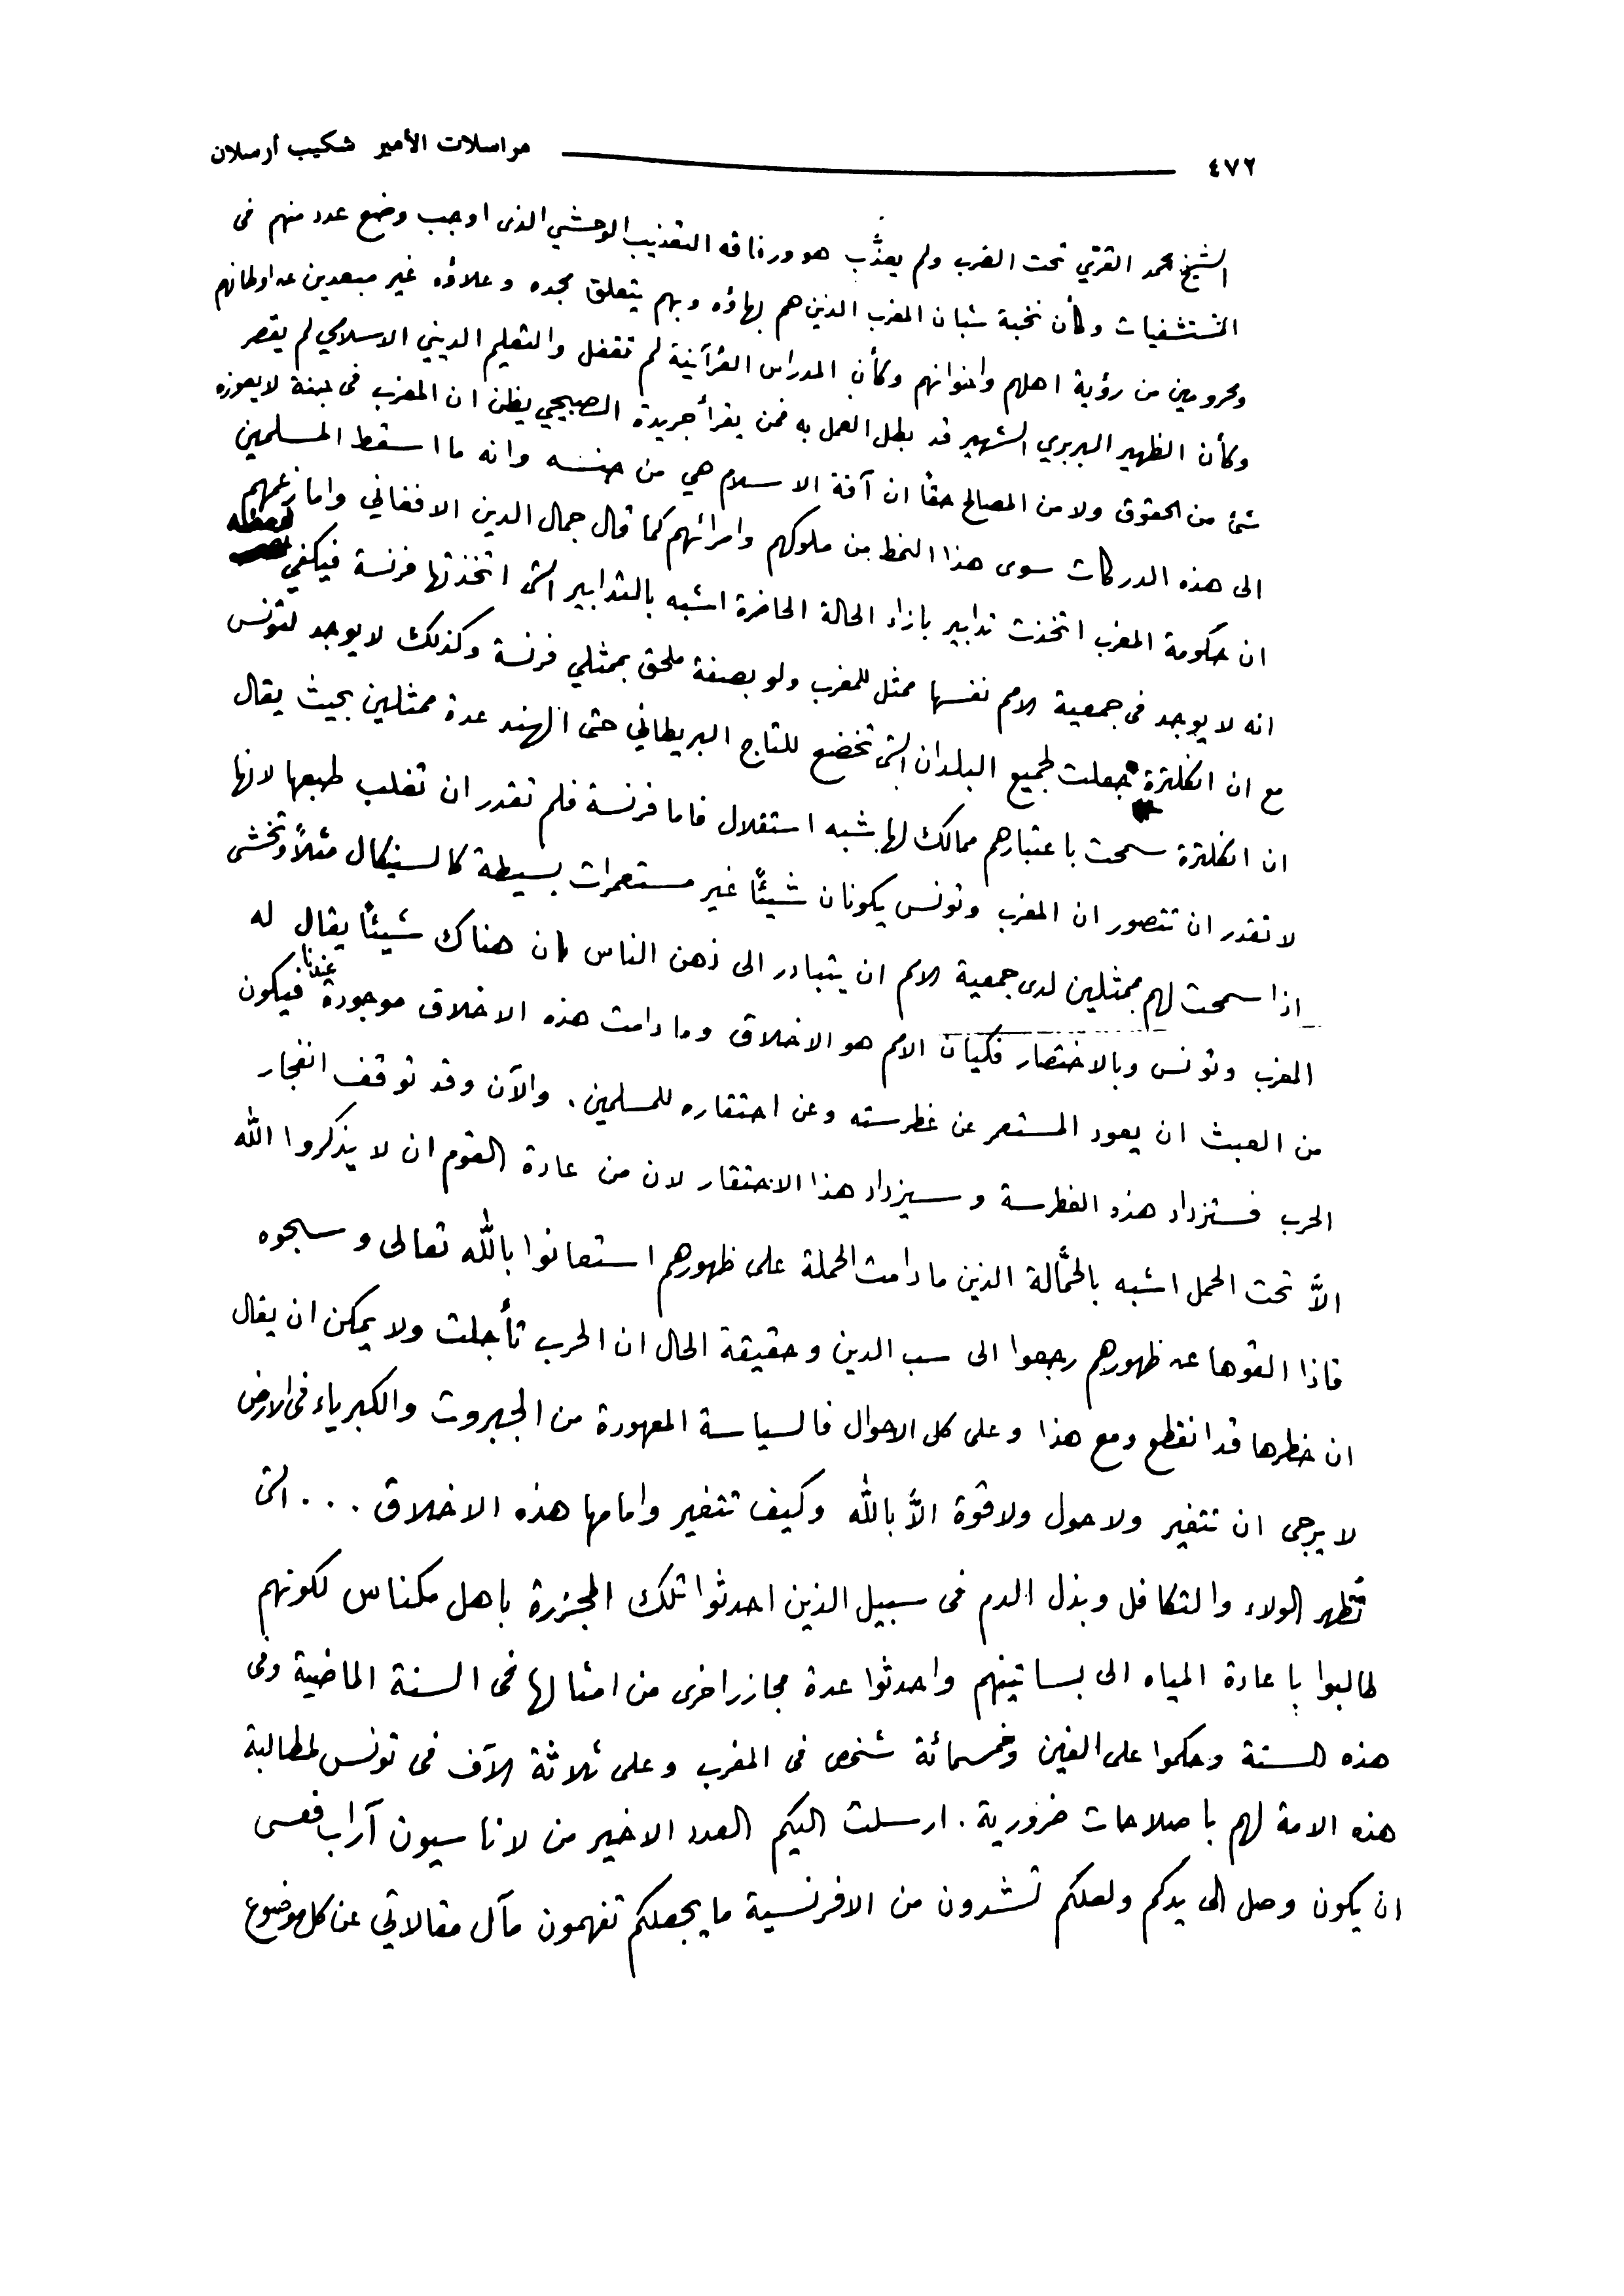 ٤٧٢ مراسلات الأمير شكيب أرسلان
الشيخ محمد القرّي تحت الضرب ولم يعذَّب هو ورفاقه التعذيب الوحشي الذى اوجب وضع عدد منهم فى
المستشفيات وكأن نخبة شبان المغرب الذين هم بهاؤه وبهم يتعلق مجده وعلاؤه غير مبعدين عن اوطانهم
ومحرومين من رؤية اهلهم واخوانهم وكأن المدراس القرآنية لم تقفل والتعليم الديني الاسلامي لم يقصر
وكأن الظهير البربري الشهير قد بطل العمل به فمن يقرأ جريدة الصبيحي يظن ان المغرب فى جنة لا يعوزه
شئ من الحقوق ولا من المصالح حقا ان آفة الاسلام هي من جنسه وانه ما اسقط المسلمين
الى هذه الدركات سوى هذا النمط من ملوكهم وامرائهم كما قال جمال الدين الافغاني واما زعمهم
ان حكومة المغرب اتخذت تدابير بازاء الحالة الحاضرة اشبه بالتدابير التى اتخذتها فرنسة فيكفي
انه لا يوجد فى جمعية الامم نفسها ممثل للمغرب ولو بصفة ملحق بممثلي فرنسة وكذلك لا يوجد لتونس
مع ان انكلترة جعلت لجميع البلدان التى تخضع للتاج البريطاني حتى الهند عدة ممثلين بحيث يقال
ان انكلترة سمحت باعتبارهم ممالك لها شبه استقلال فاما فرنسة فلم تقدر ان تغلب طبعها لانها
لا تقدر ان تتصور ان المغرب وتونس يكونان شيئًا غير مستعمرات بسيطة كالسنيكال مثلاً وتخشى
اذا سمحت لهم بممثلين لدى جمعية الامم ان يتبادر الى ذهن الناس بان هناك شيئًا يقال له
المغرب وتونس وبالاختصار فكيان الامم هو الاخلاق وما دامت هذه الاخلاق موجودة عندنا فيكون
من العبث ان يعود المستعمر عن غطرسته وعن احتقاره للمسلمين. والآن وقد توقف انفجار
الحرب فستزداد هذه الغطرسة وسيزداد هذا الاحتقار لان من عادة القوم ان لا يذكروا الله
الاَّ تحت الحمل اشبه بالحمَّالة الذين ما دامت الحملة على ظهورهم استعانوا بالله تعالى وسبحوه
فاذا القوها عن ظهورهم رجعوا الى سب الدين وحقيقة الحال ان الحرب تأجلت ولا يمكن ان يقال
ان خطرها قد انقطع ومع هذا وعلى كل الاحوال فالسياسة المعهودة من الجبروت والكبرياء فى الارض
لا يرجى ان تتغير ولا حول ولا قوة الاَّ بالله وكيف تتغير وامامها هذه الاخلاق ... التى
تُظهر الولاء والتكافل وبذل الدم فى سبيل الذين احدثوا تلك المجزرة باهل مكناس لكونهم
طالبوا باعادة المياه الى بساتينهم واحدثوا عدة مجازر اخرى من امثالها فى السنة الماضية وفى
هذه السنة وحكموا على الفين وخمسمائة شخص فى المغرب وعلى ثلاثة آلاف فى تونس لمطالبة
هذه الامة لهم باصلاحات ضرورية. ارسلت اليكم العدد الاخير من لاناسيون آراب فعسى
ان يكون وصل الى يدكم ولعلكم تشدون من الافرنسية ما يجعلكم تفهمون مآل مقالاتي عن كل موضوع